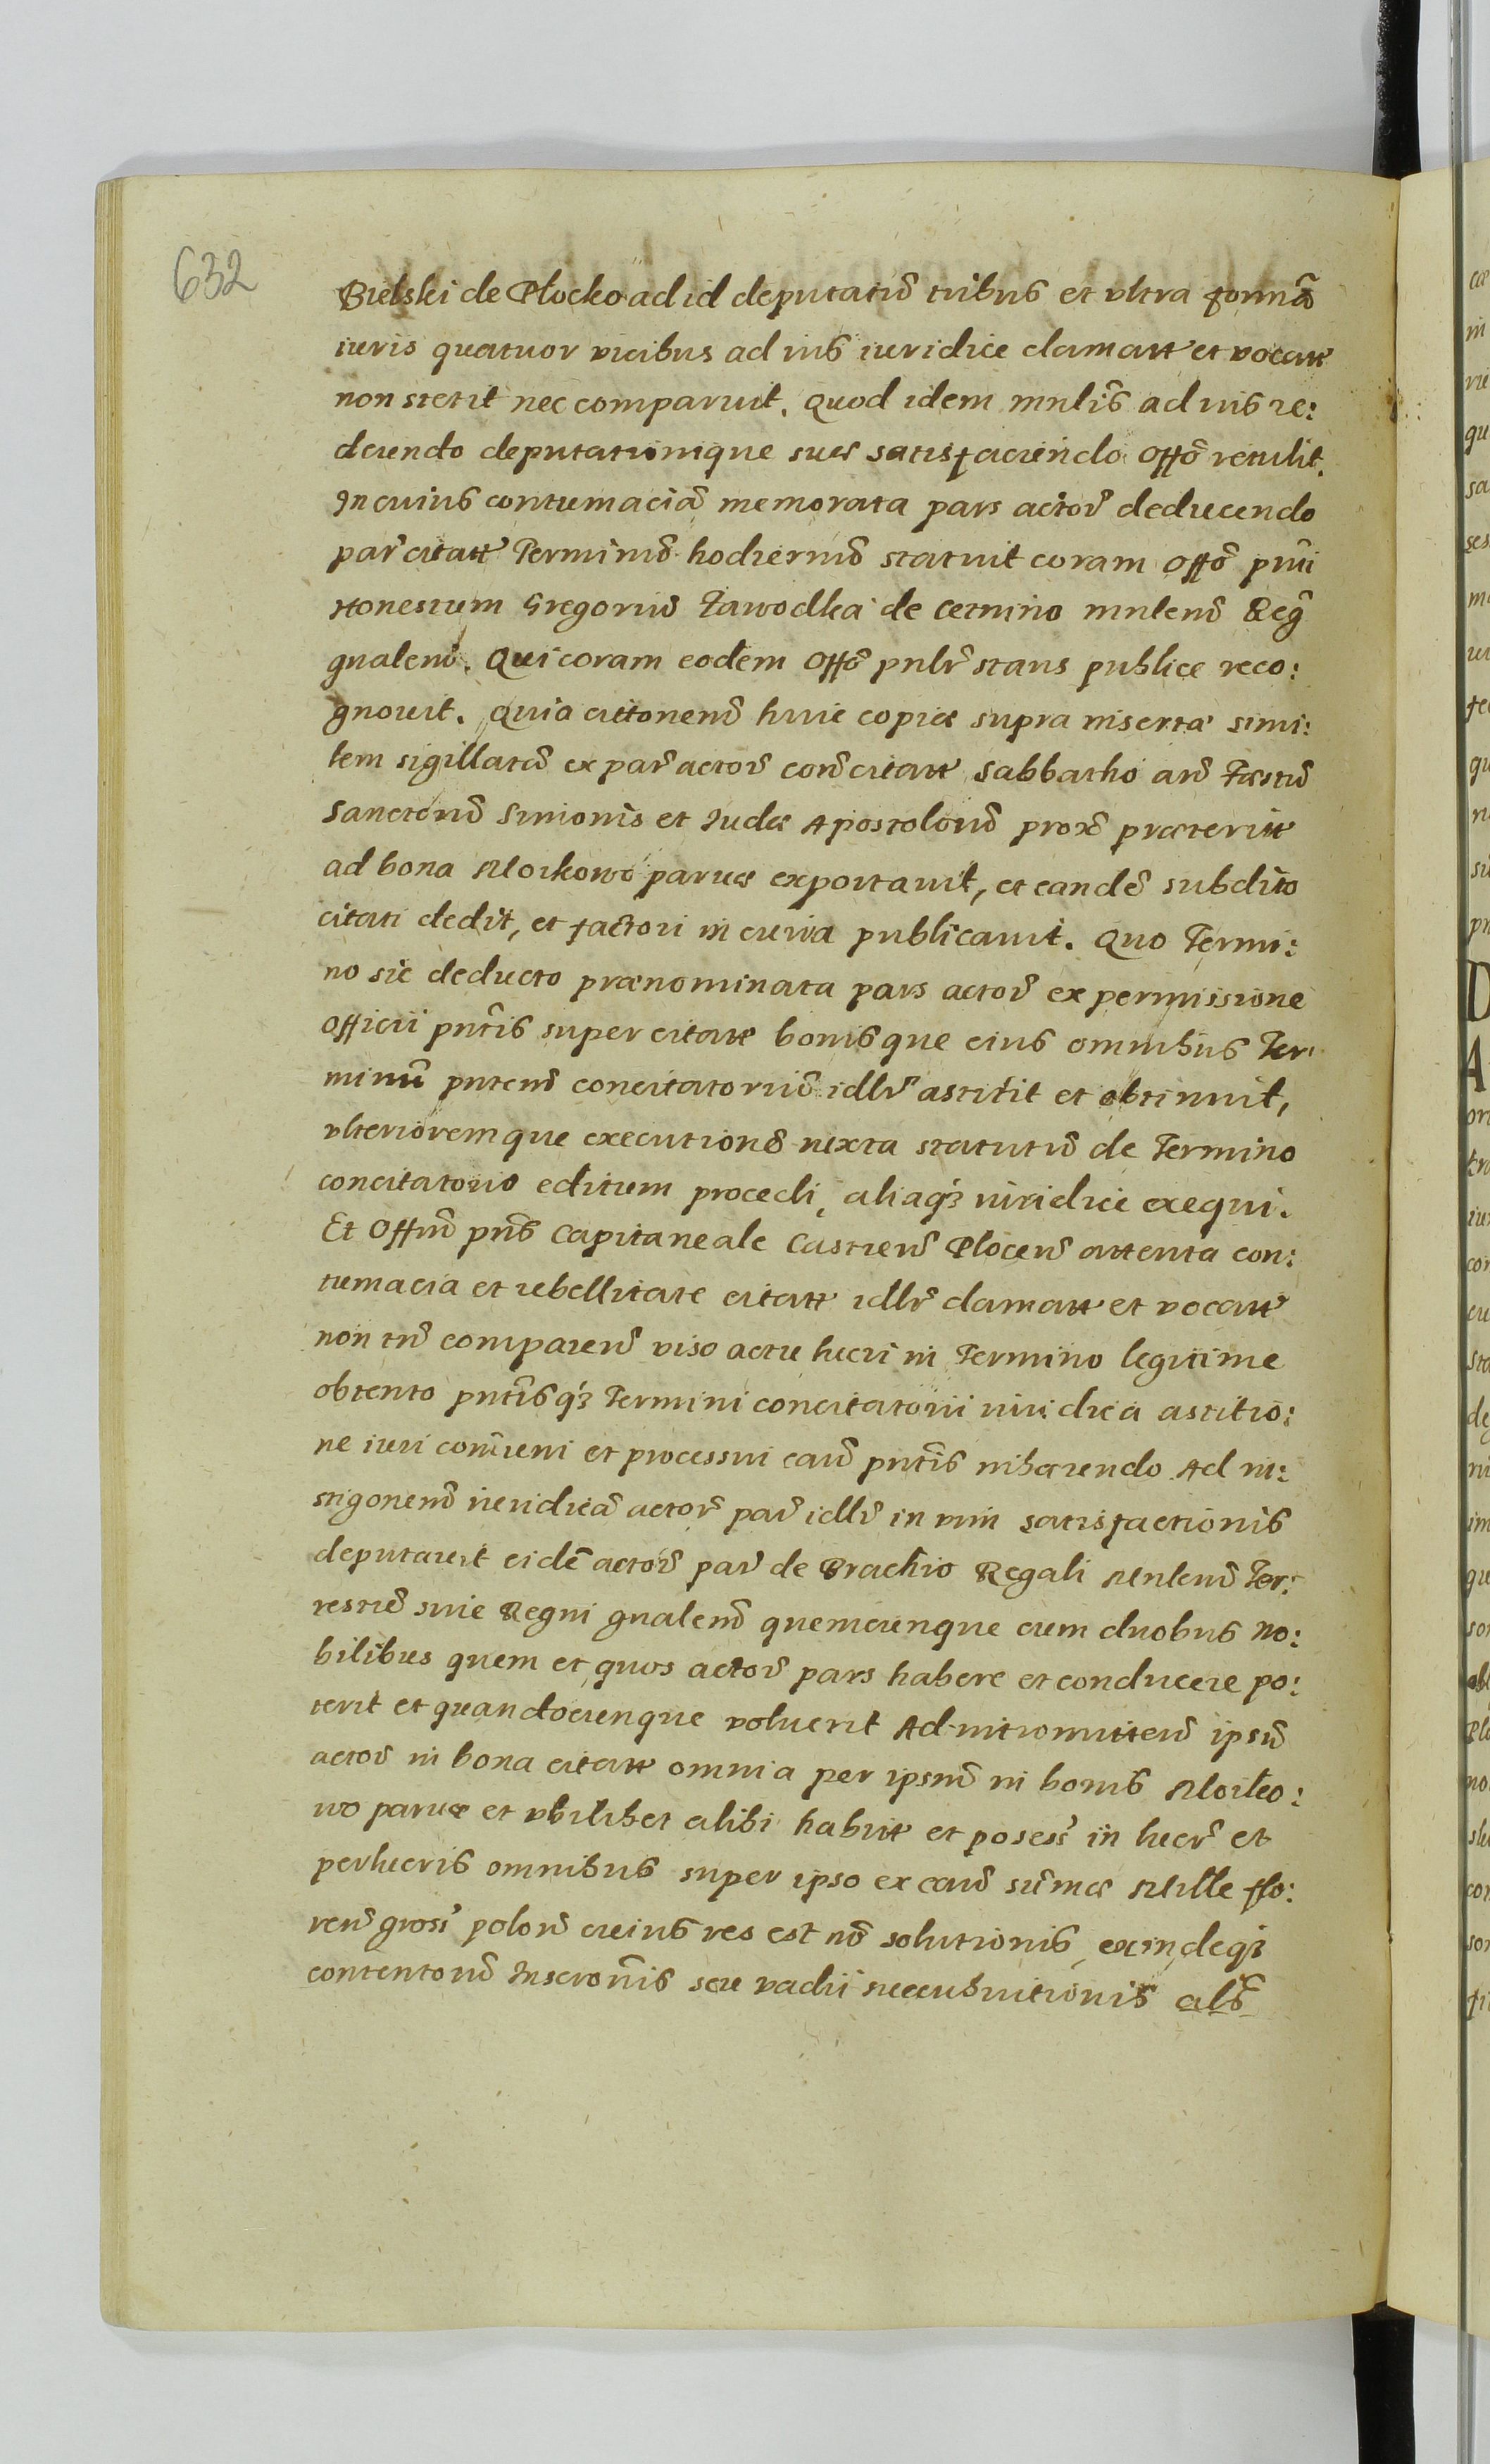 632
Bielski de Płocko ad id deputatũ tribus et vltra formã
iuris quatuor vicibus ad ius iuridice clamatt et vocatt
non stetit nec comparuit. Quod idem mnlis̃ ad ius re:
deundo deputationique suæ satisfaciendo Offõ retulit.
In cuius contumaciã memorata pars actor̃ deducendo
par̃ citatt Terminũ hodiernũ statuit coram Offõ pñti
Honestum Gregoriũ Zawodka de Cetnino mnlem̃ Reg̃
gnalem̃. Qui coram eodem Offõ pnlr̃ stans publice reco:
gnouit. Quia citt̃onem̃ huic copiæ supra inserta simi:
lem sigillatã ex par̃ actor̃ cor̃ citatt Sabbatho añ Fæstũ
Sanctorũ Simonis et Iudæ Apostolorũ prox̃ præteritt
ad bona Moikowo paruæ exportauit, et eandẽ subdito
citati dedit, et factori in curia publicauit. Quo Termi:
no sic deducto prænominata pars actor̃ ex permissione
Officii pñtis super citatt bonisque eius omnibus Ter:
minũ pñtem̃ concitatoriũ idlr̃ astitit et obtinuit,
vlterioremque executionẽ iuxta statutũ de Termino
concitatorio editum procedi, aliaqʒ iuridice exequi.
Et Offiũ pñs Capitaneale Castren̄ Plocen̄ attenta con:
tumacia et rebellitate citatt idlr̃ clamatt et vocatt
non tñ comparen̄ viso actu lucri in Termino legitime
obtento pñtisqʒ Termini concitatorii iuridica astitio:
ne iuri com̃uni et processui caus̃ pñtis inhærendo Ad in:
stigonem̃ iuridicã actor̃ par̃ idlr̃ in vim satisfactionis
deputauit eidẽ actor̃ par̃ de Brachio Regali Mnlem̃ Ter:
restrẽ siue Regni gnalem̃ quemcunque cum duobus No:
bilibus quem et quos actor̃ pars habere et conducere po:
terit et quandocunque voluerit Ad intromitten̄ ipsũ
actor̃ in bona citatt omnia per ipsum̃ in bonis Moiko:
wo paruæ et vbilibet alibi habitt et posess̃ in lucr̃ et
perlucris omnibus super ipso ex caus̃ sum̃æ Mille flo:
ren̄ gross̃ polon̄ cuius res est nõ solutionis, exindeqʒ
contentorũ Inscronis̃ seu vadii succubuitionis als̃